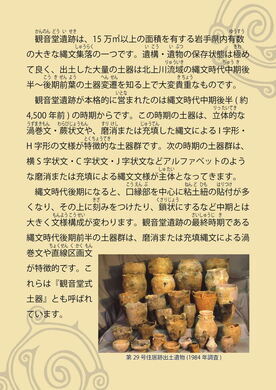 観音堂遺跡は、15 万㎡以上の面積を有する岩手県内有数
の大きな縄文集落の一つです。遺構・遺物の保存状態は極め
て良く、出土した大量の土器は北上川流域の縄文時代中期後
半～後期前葉の土器変遷を知る上で大変貴重なものです。
観音堂遺跡が本格的に営まれたのは縄文時代中期後半（約
4,500 年前）の時期からです。この時期の土器は、立体的な
渦巻文・蕨状文や、磨消または充填した縄文による I 字形・
H 字形の文様が特徴的な土器群です。次の時期の土器群は、
横 S 字状文・C 字状文・J 字状文などアルファベットのよう
な磨消または充填による縄文文様が主体となってきます。
縄文時代後期になると、口縁部を中心に粘土紐の貼付が多
くなり、その上に刻みをつけたり、鎖状にするなど中期とは
大きく文様構成が変わります。観音堂遺跡の最終時期である
縄文時代後期前半の土器群は、磨消または充填縄文による渦
巻文や直線区画文
が特徴的です。こ
れらは『観音堂式
土器』とも呼ばれ
ています。
第 29 号住居跡出土遺物（1984 年調査）